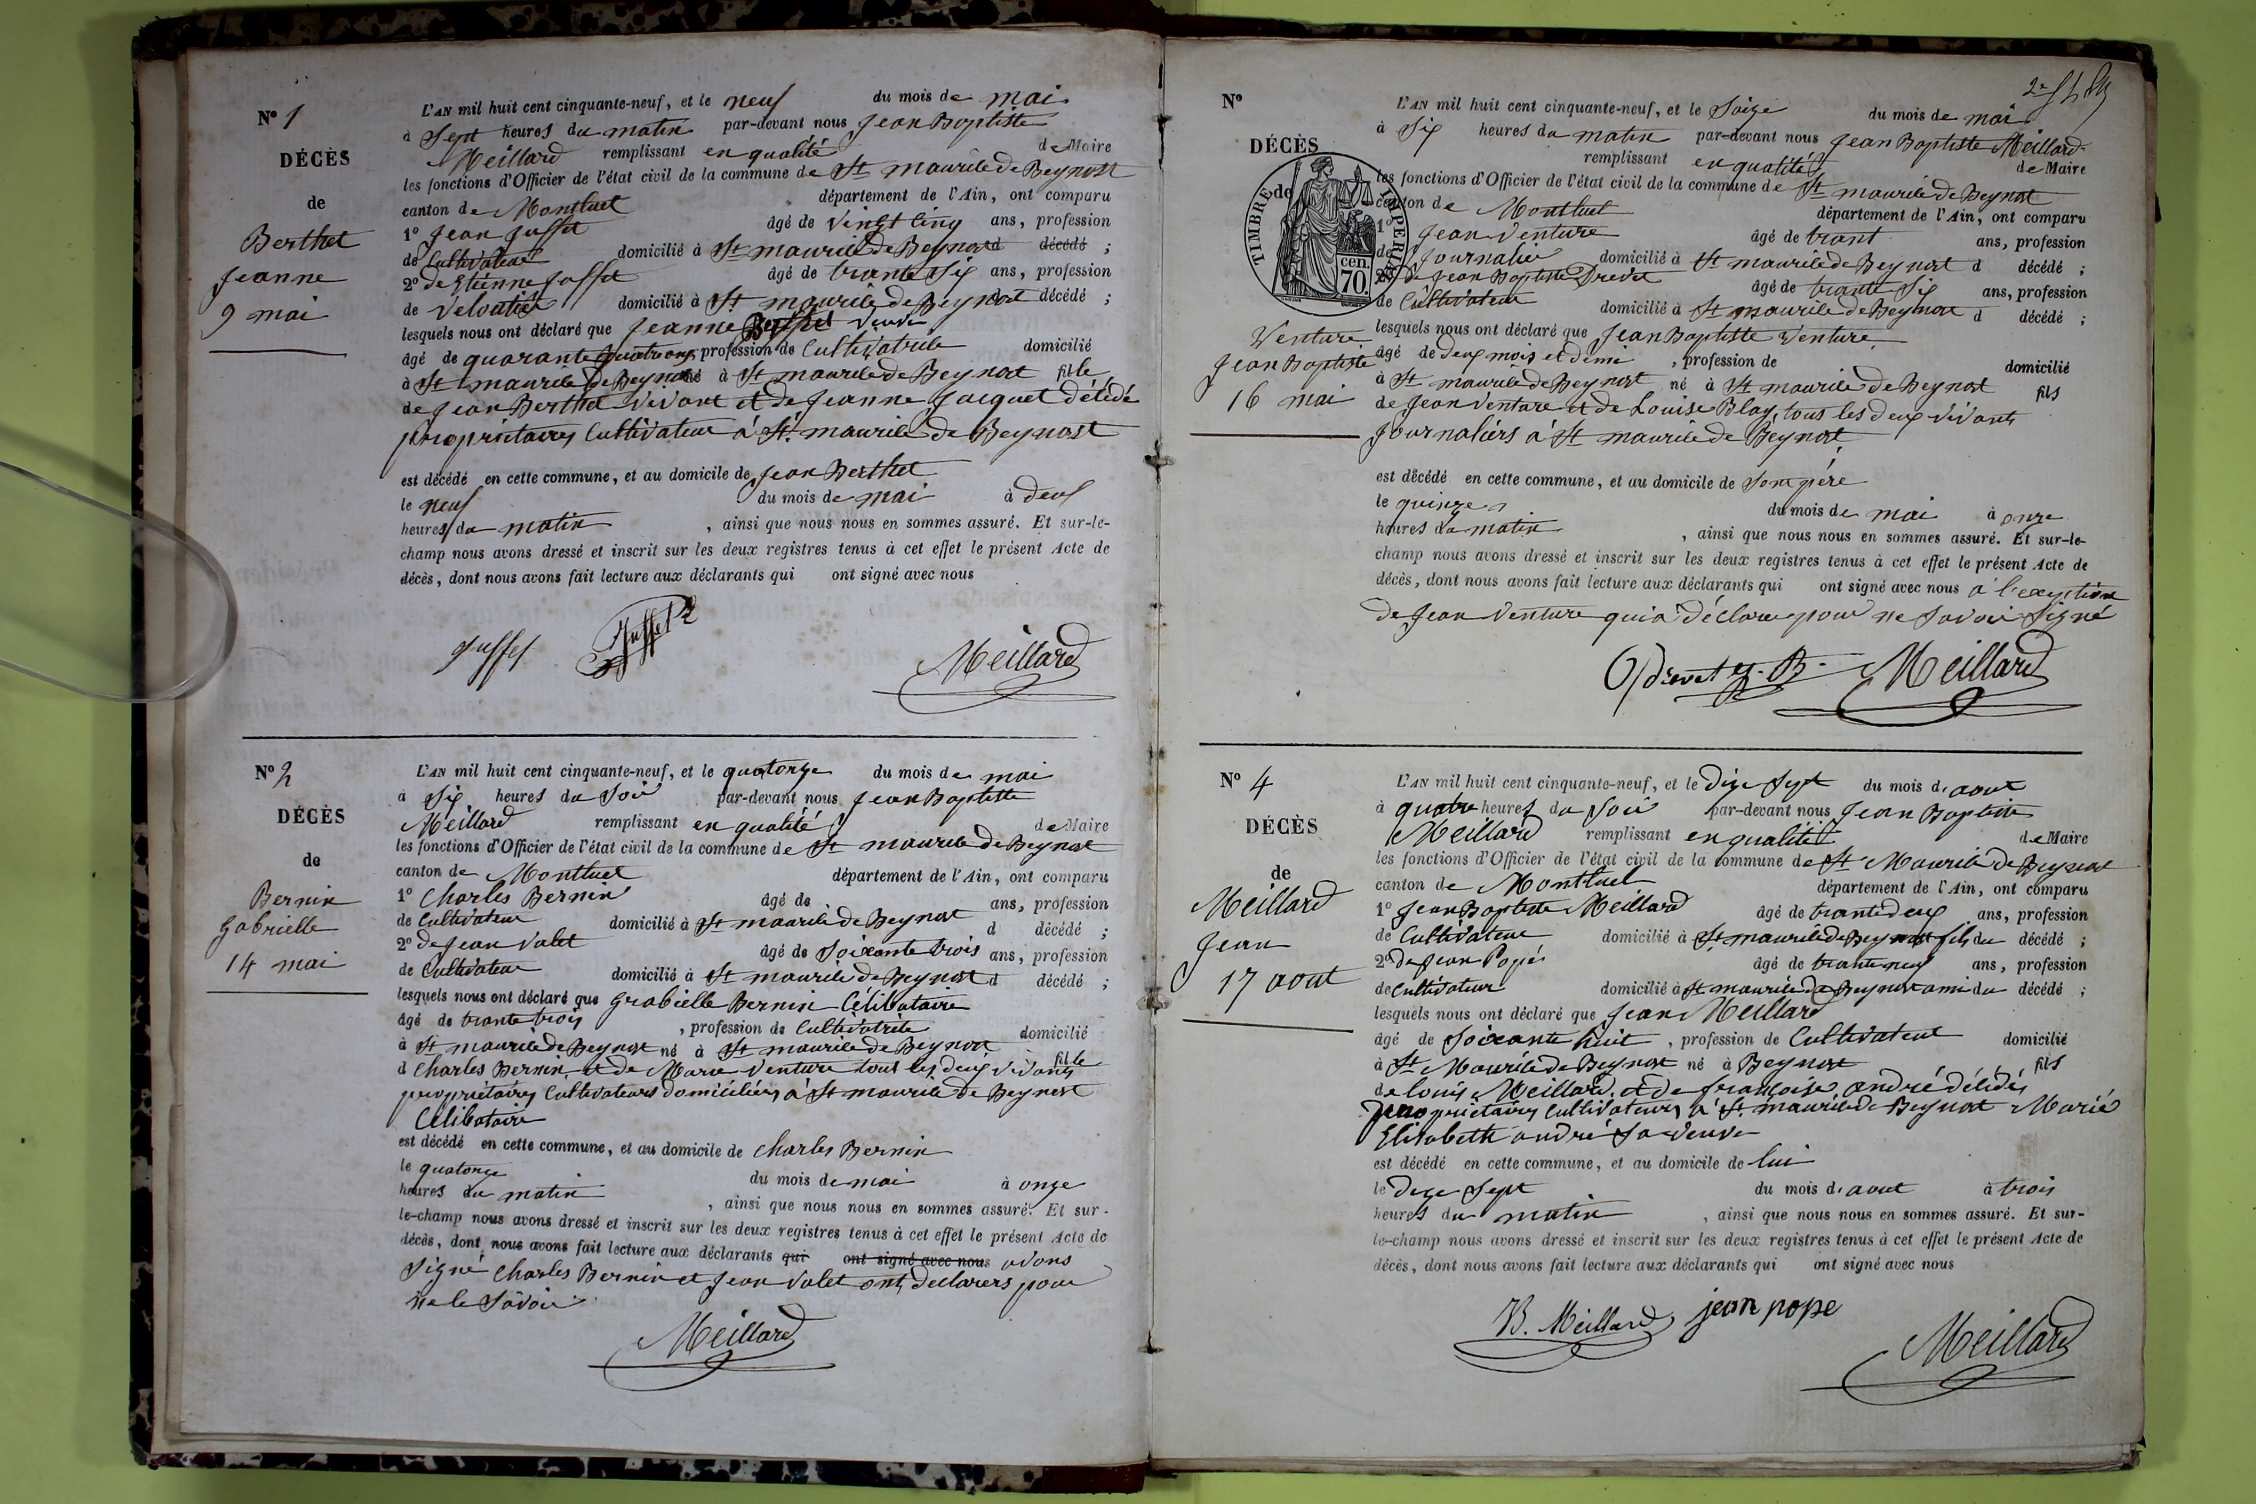 Nº 1
DÉCÈS
de
Berthet
Jeanne
9 mai
L'AN mil huit cent cinquante-neuf, et le neuf du mois de mai
à Sept heures du matin par-devant nous Jean Baptiste
Meillard remplissant en qualité de Maire
les fonctions d'Officier de l'état civil de la commune de St maurice de Beynost
canton de Montluel département de l'Ain, ont comparu
1º Jean Juffet âgé de vingt cinq ans, profession
de Cultivateur domicilié à St maurice de Beynost d décédé ;
2º de Etienne Juffet âgé de trante six ans, profession
de domicilié à St maurice de Beynost d décédé ;
lesquels nous ont déclaré que Jeanne Berthet veuve
âgé de quarante quatre ans, profession de Cultivatrice domicilié
à St maurice de Beynost né à St maurice de Beynost fille
de Jean Berthet vivant et de Jeanne Jacquet décédé
propriétaires Cultivateur à St maurice de Beynost
est décédé en cette commune, et au domicile de Jean Berthet
le neuf du mois de mai à deux
heures du matin , ainsi que nous nous en sommes assuré. Et sur-le-
champ nous avons dressé et inscrit sur les deux registres tenus à cet effet le présent Acte de
décès, dont nous avons fait lecture aux déclarants qui ont signé avec nous
Juffet Juffet Meillard
Nº 2
DÉCÈS
de
Bernin
Gabrielle
14 mai
L'AN mil huit cent cinquante-neuf, et le quatorze du mois de mai
à Six heures du Soir par-devant nous Jean Baptiste
Meillard remplissant en qualité de Maire
les fonctions d'Officier de l'état civil de la commune de St maurice de Beynost
canton de Montluel département de l'Ain, ont comparu
1º Charles Bernin âgé de ans, profession
de Cultivateur domicilié à St maurice de Beynost d décédé ;
2º de Jean Valet âgé de Soixante trois ans, profession
de Cultivateur domicilié à St maurice de Beynost d décédé ;
lesquels nous ont déclaré que Grabielle Bernin Célibataire
âgé de trante trois , profession de Cultivatrice domicilié
à St maurice de Beynost né à St maurice de Beynost fille
d Charles Bernin et de Marie Venture tous les deux vivants
propriétaires Cultivateurs domiciliés à St maurice de Beynost
Célibataire
est décédé en cette commune, et au domicile de Charles Bernin
le quatorze du mois de mai à onze
heures du matin , ainsi que nous nous en sommes assuré. Et sur-
le-champ nous avons dressé et inscrit sur les deux registres tenus à cet effet le présent Acte de
décès, dont nous avons fait lecture aux déclarants qui ont signé avec nous avons
Signé Charles Bernin et Jean Valet ont declarers pour
ne le Savoir
Meillard
Nº
DÉCÈS
de
TIMBRE IMPERIAL
cen.
70.
Venture
Jean Baptiste
16 mai
L'AN mil huit cent cinquante-neuf, et le Saize du mois de mai
à Six heures du matin par-devant nous Jean Baptiste Meillard
remplissant en qualité de Maire
les fonctions d'Officier de l'état civil de la commune de St maurice de Beynost
canton de Montluel département de l'Ain, ont comparu
1º Jean Venture âgé de trant ans, profession
de Journalier domicilié à St maurice de Beynost d décédé ;
2º de Jean Baptiste Drevet âgé de trante Six ans, profession
de Cultivateur domicilié à St maurice de Beynost d décédé ;
lesquels nous ont déclaré que Jean Baptiste Venture
âgé de deux mois et demi , profession de domicilié
à St maurice de Beynost né à St maurice de Beynost fils
de Jean Venture et de Louise Blay, tous les deux vivants
Journaliers à St maurice de Beynost
est décédé en cette commune, et au domicile de Son père
le quinze du mois de mai à onze
heures du matin , ainsi que nous nous en sommes assuré. Et sur-le-
champ nous avons dressé et inscrit sur les deux registres tenus à cet effet le présent Acte de
décès, dont nous avons fait lecture aux déclarants qui ont signé avec nous à l'exeption
de Jean Venture qui a déclare pour ne Savoir Signé
Drevet J. B. Meillard
Nº 4
DÉCÈS
de
Meillard
Jean
17 aout
L'AN mil huit cent cinquante-neuf, et le dixe Sept du mois d, aout
à quatre heures du Soir par-devant nous Jean Baptiste
Meillard remplissant en qualité de Maire
les fonctions d'Officier de l'état civil de la commune de St Maurice de Beynost
canton de Montluel département de l'Ain, ont comparu
1º Jean Baptiste Meillard âgé de trante deux ans, profession
de Cultivateur domicilié à St maurice de Beynost fils du décédé ;
2º de Jean âgé de trante neuf ans, profession
de Cultivateur domicilié à St maurice de Beynost ami du décédé ;
lesquels nous ont déclaré que Jean Meillard
âgé de Soixante huit , profession de Cultivateur domicilié
à St Maurice de Beynost né à Beynost fils
de louis Meillard et de françoise andré décédés
propriétaires Cultivateurs à St maurice de Beynost Marié
Elisabeth andré Sa veuve
est décédé en cette commune, et au domicile de lui
le dixe Sept du mois d, aout à trois
heures du matin , ainsi que nous nous en sommes assuré. Et sur-
le-champ nous avons dressé et inscrit sur les deux registres tenus à cet effet le présent Acte de
décès, dont nous avons fait lecture aux déclarants qui ont signé avec nous
B. Meillard jean pope Meillard